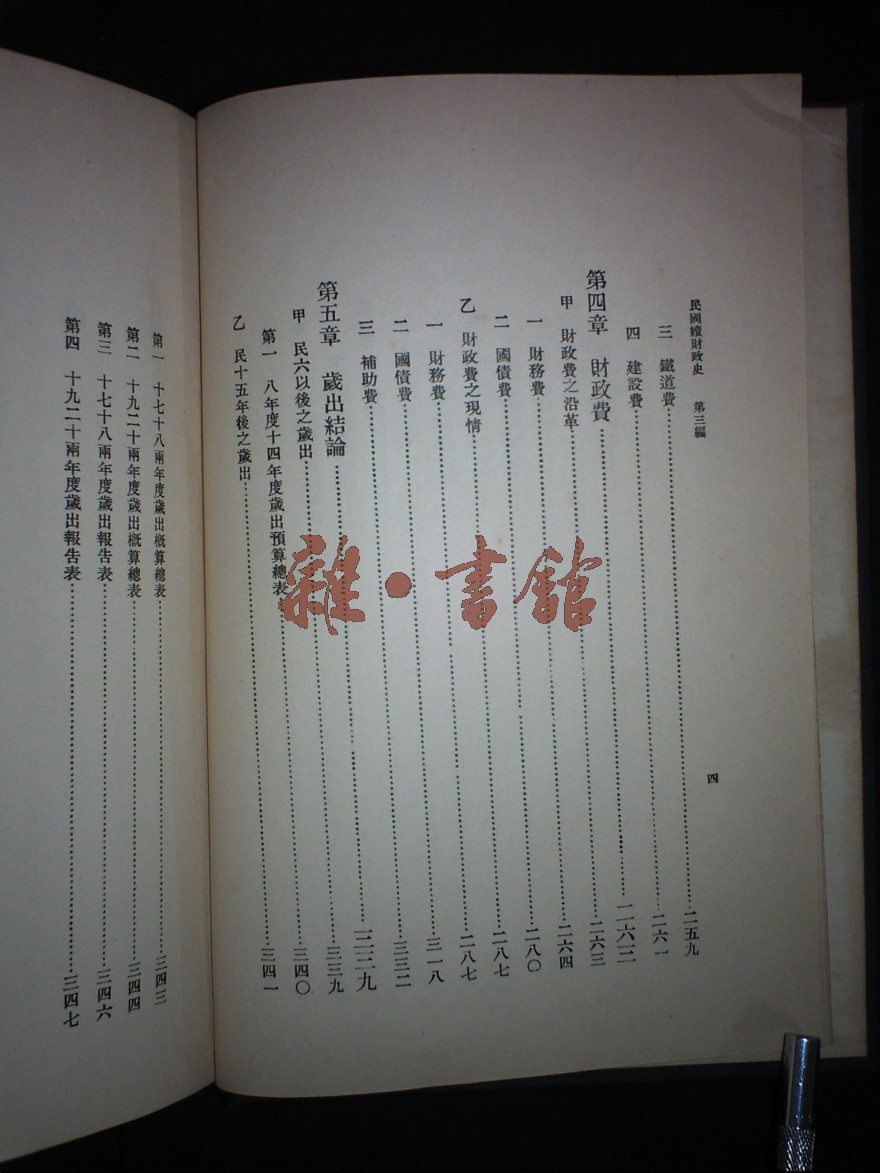 民國續財政史 第三編
四
三 鐵道費 二五九
四 建設費 二六一
第四章 財政費 二六二
甲 財政費之沿革 二六三
一 財務費 二六四
二 國債費 二八〇
乙 財政費之現情 二八七
一 財務費 二八七
二 國債費 三一八
三 補助費 三三二
第五章 歲出結論 三三九
甲 民六以後之歲出 三三九
第一 八年度十四年度歲出預算總表 三四〇
乙 民十五年後之歲出 三四一
第一 十七十八兩年度歲出概算總表 三四三
第二 十九二十兩年度歲出概算總表 三四四
第三 十七十八兩年度歲出報告表 三四六
第四 十九二十兩年度歲出報告表 三四七
雜·書館